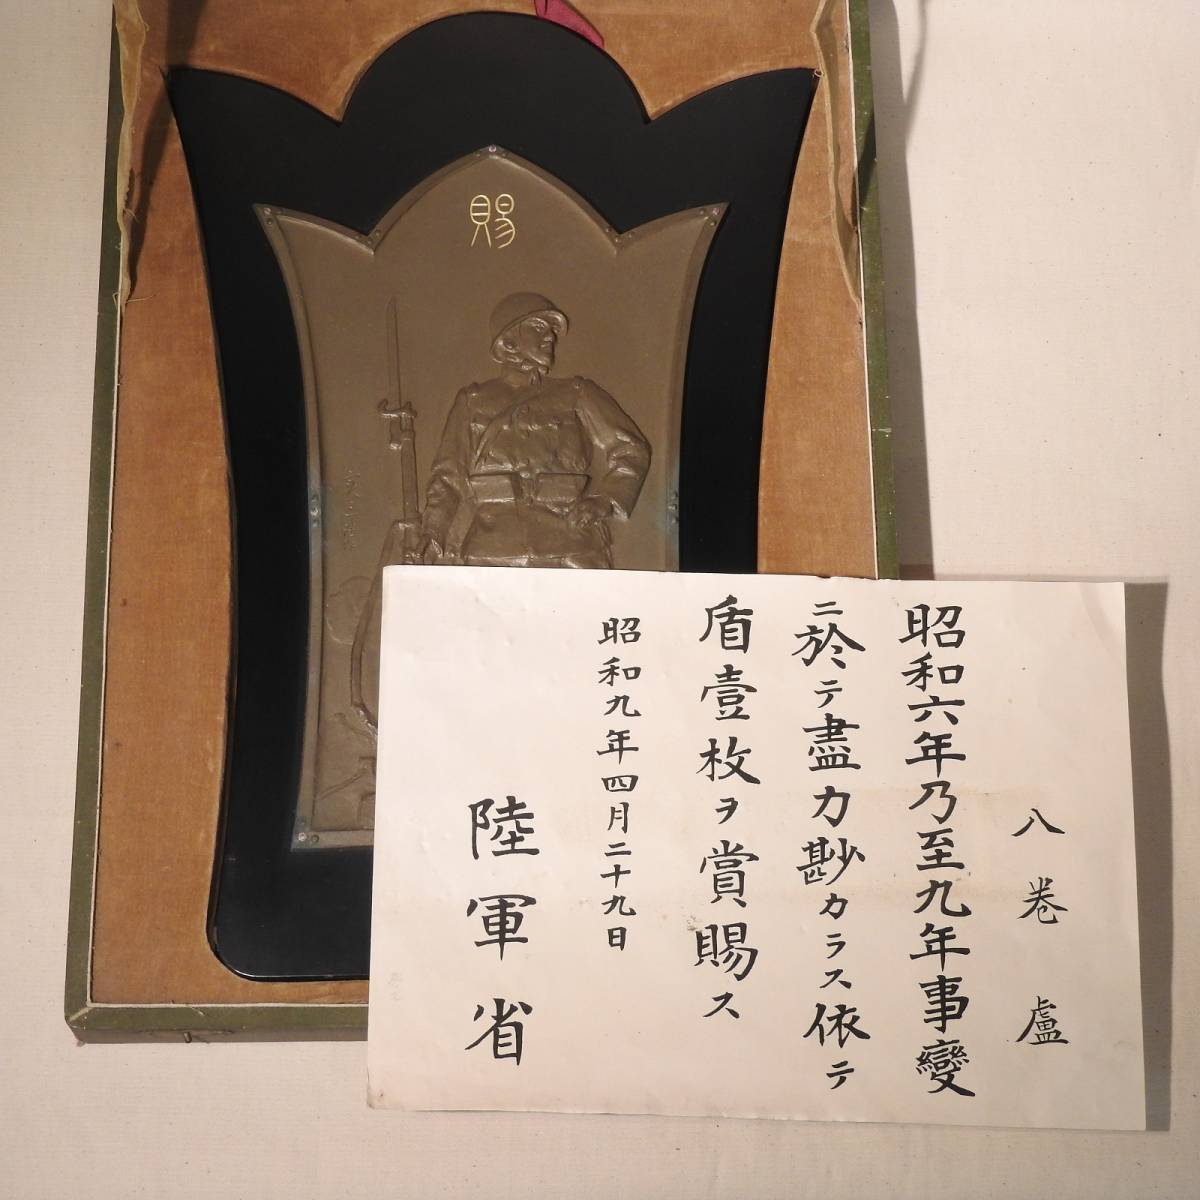 賜
八巻盧
昭和六年乃至九年事變
ニ於テ盡力尠カラス依テ
盾壹枚ヲ賞賜ス
昭和九年四月二十九日
陸軍省